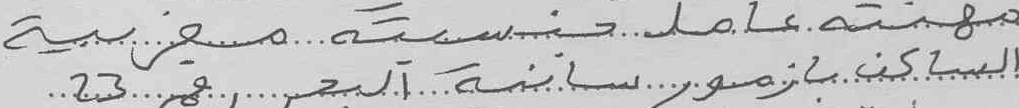 مهنته عامل جنسيته مغربية
الساكن بازمور سانية البحر رقم 23